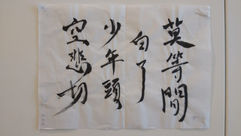 莫等閒
白了
少年頭
空悲切